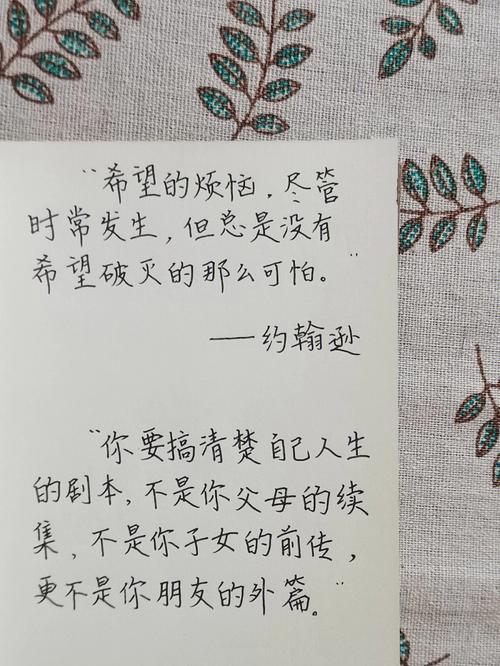 “希望的烦恼，尽管
时常发生，但总是没有
希望破灭的那么可怕。”
——约翰逊
“你要搞清楚自己人生
的剧本，不是你父母的续
集，不是你子女的前传，
更不是你朋友的外篇。”